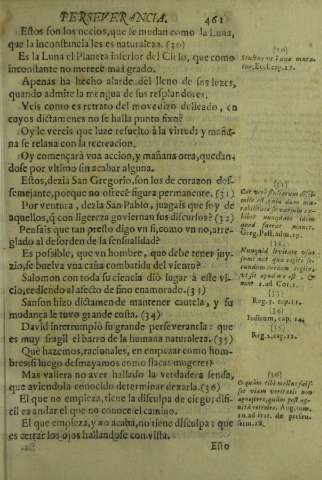 PERSEVERANCIA. 461
Estos son los necios, que se mudan como la Luna,
que la inconstancia les es naturaleza. (30)
Es la Luna el Planeta inferior del Cielo, que como
inconstante no mereció mas grado.
Apenas ha hecho alarde del lleno de sus luzes,
quando admite la mengua de sus resplandores.
Veis como es retrato del movedizo delicado, en
cuyos dictamenes no se halla punto fixo?
Oy le vereis que luze resuelto à la virtud; y maña-
na se relaxa con la recreacion.
Oy començarà vna accion, y mañana otra, quedan-
dose por vltimo sin acabar alguna.
Estos, dezia San Gregorio, son los de corazon des-
semejante, porque no ofrece figura permanente. (31)
Por ventura, dezia San Pablo, juzgais que soy de
aquellos, q̃ con ligereza governian sus discursos? (32)
Pensais que tan presto digo vn si, como vn no, arre-
glado al desorden de la sensualidad?
Es possible, que vn hombre, que debe tener juy-
zio, se buelva vna caña combatida del viento?
Salomon con toda su ciencia diò lugar à este vi-
cio, cediendo al afecto de fino enamorado. (33)
Sanson hizo dictamen de mantener cautela, y su
mudança le tuvo grande costa. (34)
David interrumpiò su grande perseverancia: que
es muy fragil el barro de la humana naturaleza. (35)
Què hazemos, racionales, en empezar como hom-
bres, si luego desmayamos como flacas mugeres?
Mas valiera no aver hallado la verdadera senda,
que aviendola conocido determinar dexarla. (36)
El que no empieza, tiene la disculpa de ciego; difi-
cil es andar el que no conoce el camino.
El que empieza, y no acaba, no tiene disculpa: que
es cerrar los ojos hallandose con vista.
Esto
(30)
Stultus ut luna muta-
tur, Eccl. cap. 27.
(31)
Greg. Past. adm. 12.
(32)
Nunquid levitate usus
2. ad Cor. 1.
(33)
Reg. 3. cap. 11.
(34)
Iudicum, cap. 14.
(35)
Reg. 2. cap. 11.
(36)